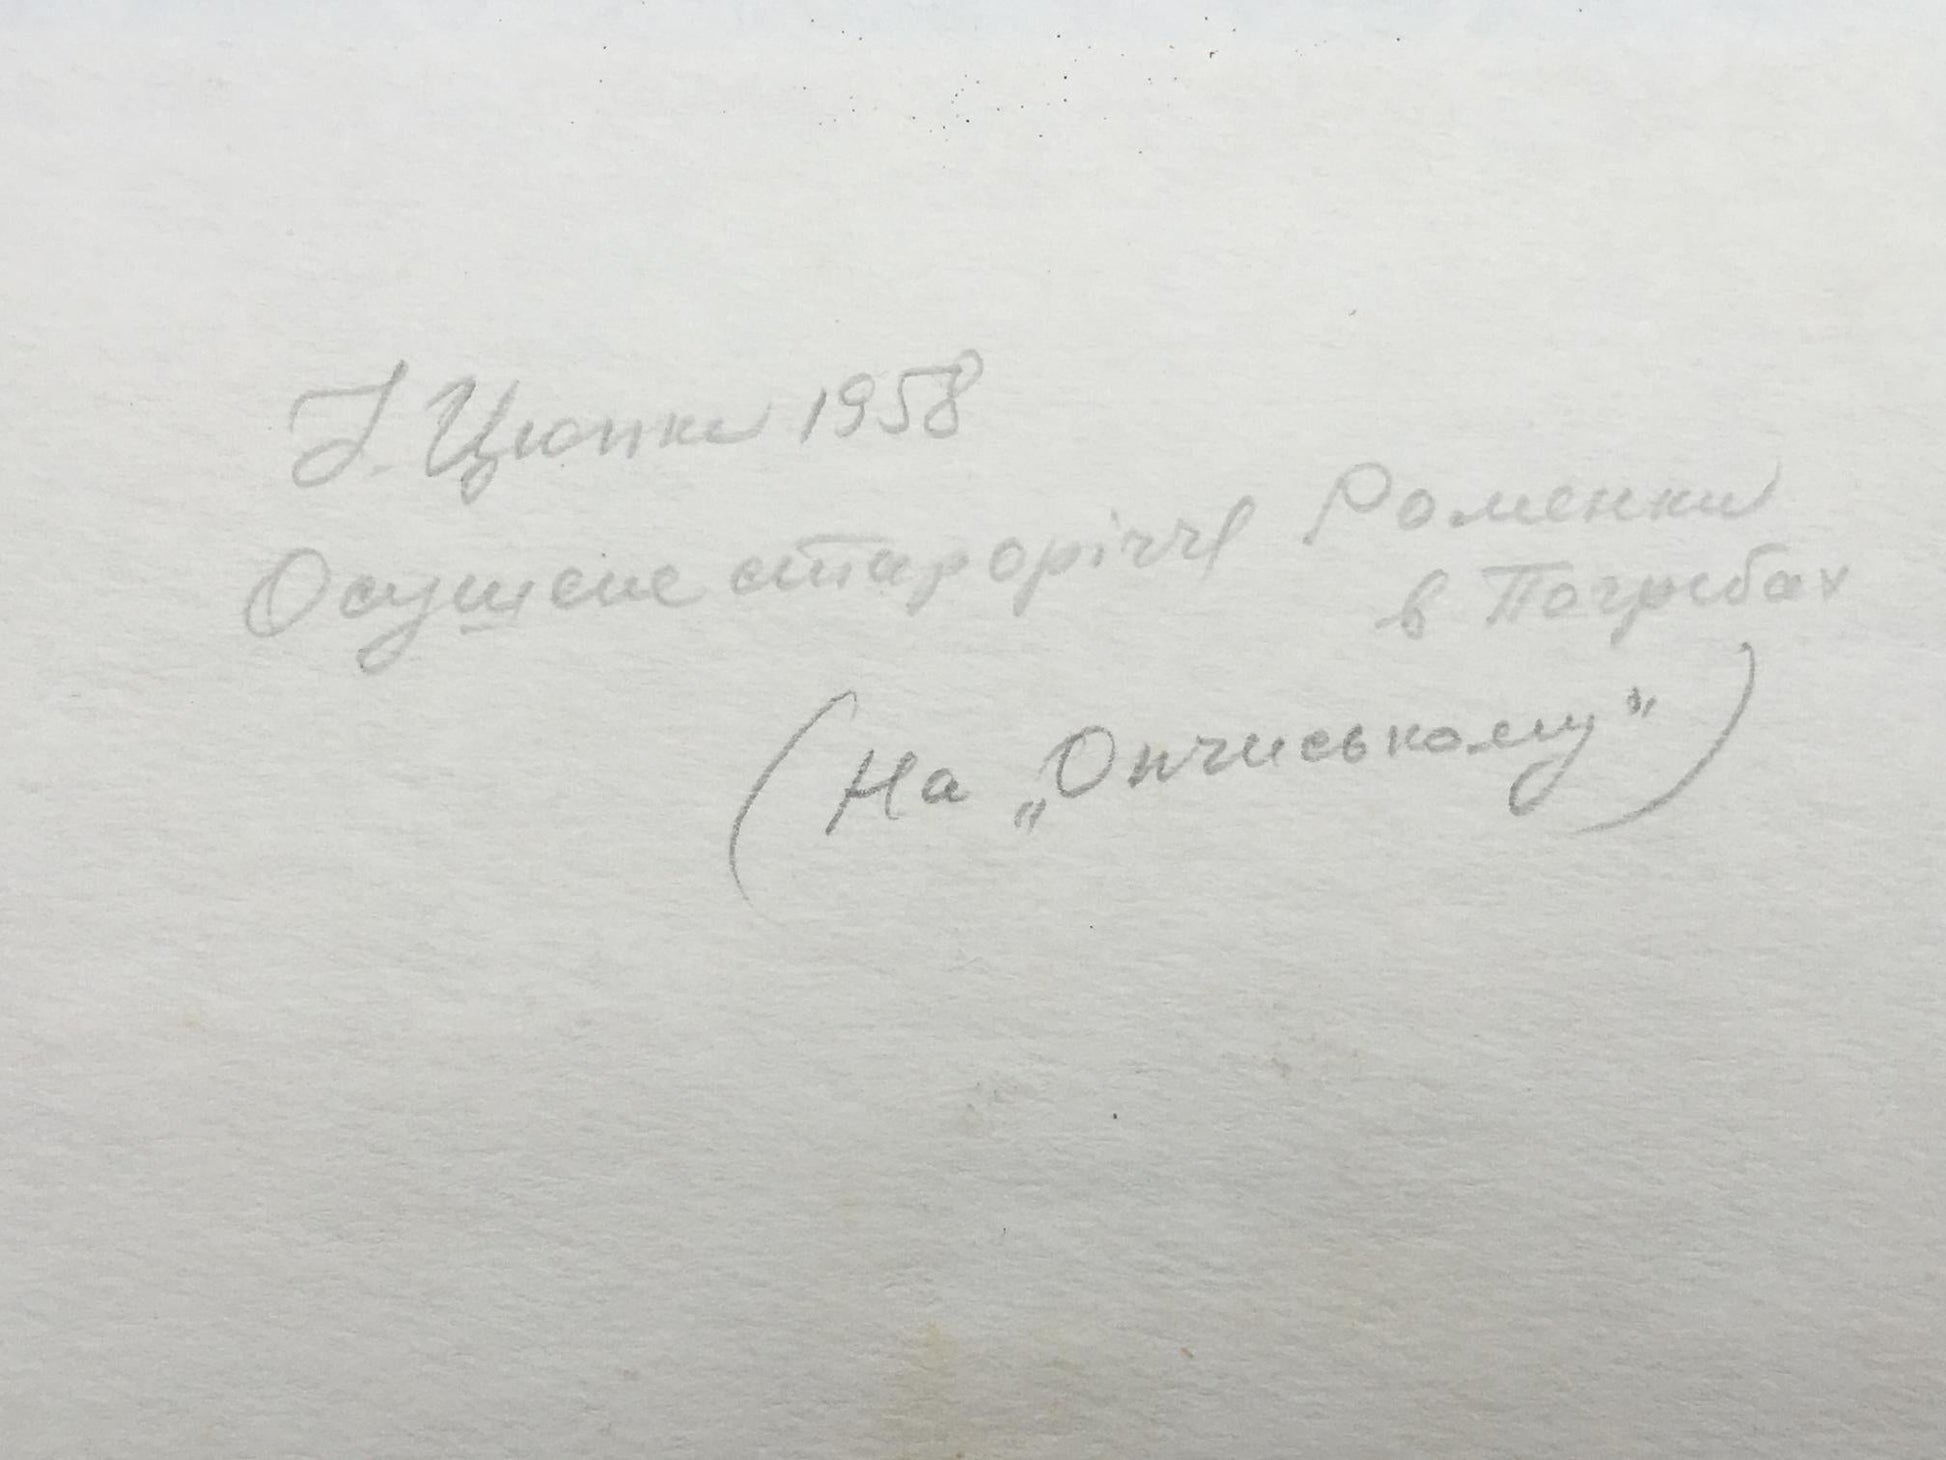 І. Цюпка 1958
Осушене староріччя Роменки
в Погребах
(На „Ончиському")